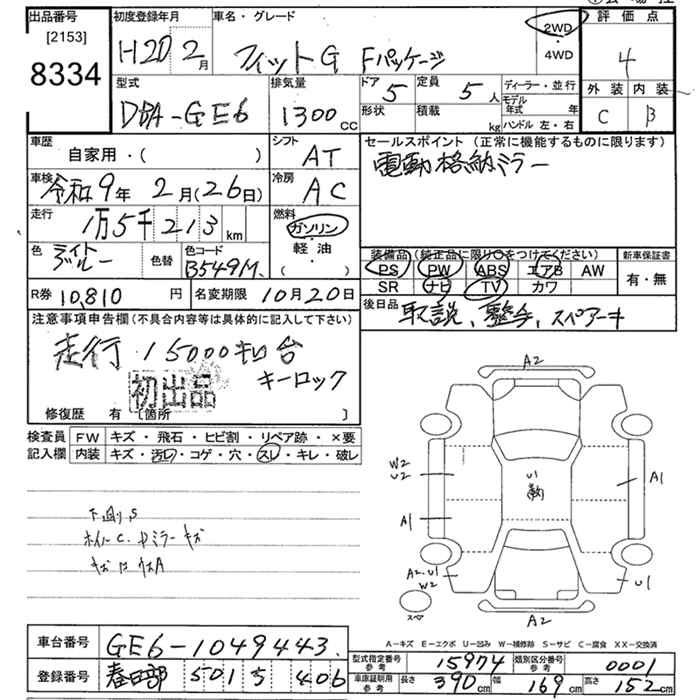 出品番号
[2153]
8334
初度登録年月
H20 2月
車名・グレード
フィットG Fパッケージ
2WD
・
4WD
評価点
4
外装 内装
C B
型式
DBA-GE6
排気量
1300cc
ドア 5
形状
定員 5人
積載 kg
ディーラー・並行
モデル年式 年
ハンドル 左・右
車歴
自家用・( )
シフト
AT
車検
令和9年2月(26日)
冷房
AC
走行
1万5千213km
燃料
ガソリン
・
軽油
( ・ )
色 ライトブルー
色替
色コード
B549M
R券 10,810円
名変期限 10月20日
セールスポイント (正常に機能するものに限ります)
電動格納ミラー
装備品 (純正品に限り○をつけてください)
PS PW ABS エアB AW
SR ナビ TV カワ
新車保証書
有・無
後日品
取説、整手、スペアーキ
注意事項申告欄 (不具合内容等は具体的に記入して下さい)
走行15000キロ台
初出品
キーロック
修復歴 有 〔箇所 〕
検査員記入欄
FW キズ・飛石・ヒビ割・リペア跡・×要
内装 キズ・汚レ・コゲ・穴・スレ・キレ・破レ
下廻りS
ホイルC.ドミラーキズ
A2
W2
U2
A1
A1
U1
A2.U1
W2
U1
スペア
A2
A-キズ E-エクボ U-凹み W-補修跡 S-サビ C-腐食 XX-交換済
車台番号 GE6-1049443
登録番号 春日部 501 5 406
型式指定番号 参考 15974
類別区分番号 参考 0001
車庫証明用 参考 長さ 390cm 幅 169cm 高さ 152cm